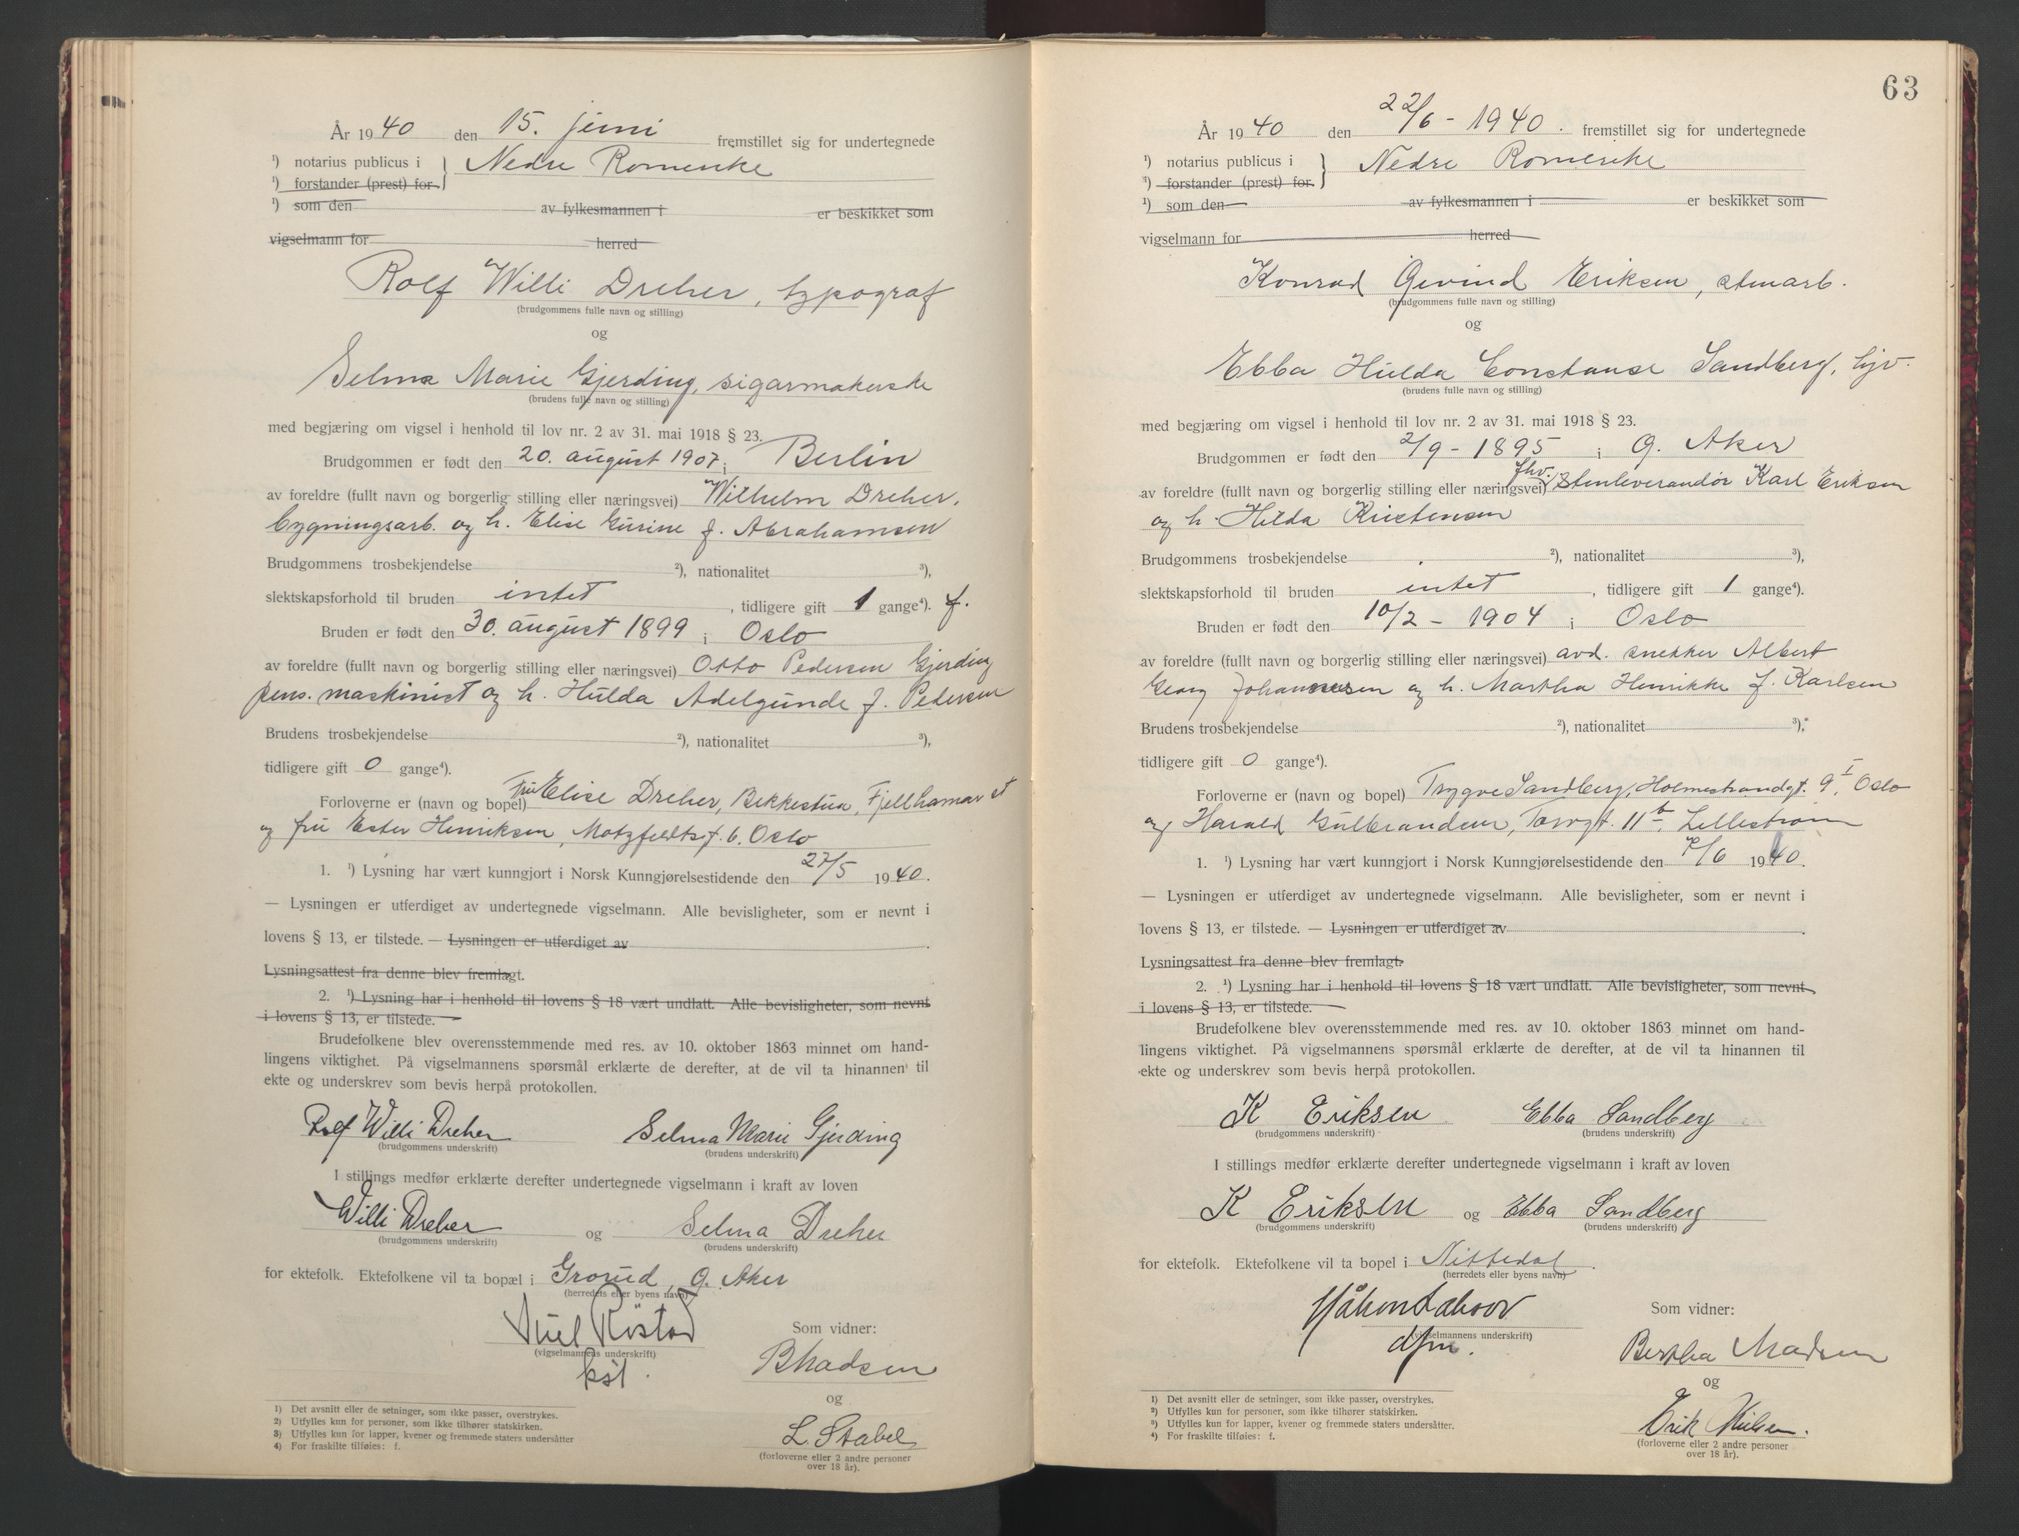 År 1940 den 15. juni fremstillet sig for undertegnede
¹) notarius publicus i } Nedre Romerike
¹) forstander (prest) for
¹) som den av fylkesmannen i er beskikket som
vigselmann for herred
Rolf Willi Dreher, typograf
(brudgommens fulle navn og stilling)
og
Selma Marie Gjerding, sigarmakerske
(brudens fulle navn og stilling)
med begjæring om vigsel i henhold til lov nr. 2 av 31. mai 1918 § 23.
Brudgommen er født den 20. august 1907 i Berlin
av foreldre (fullt navn og borgerlig stilling eller næringsvei) Wilhelm Dreher,
bygningsarb. og h. Elise Gurine f. Abrahamsen
Brudgommens trosbekjendelse ²), nationalitet ³),
slektskapsforhold til bruden intet, tidligere gift 1 gange⁴). f.
Bruden er født den 30. august 1899 i Oslo
av foreldre (fullt navn og borgerlig stilling eller næringsvei) Otto Pedersen Gjerding
pens. maskinist og h. Hulda Adelgunde f. Pedersen
Brudens trosbekjendelse ²), nationalitet ³),
tidligere gift 0 gange⁴).
Forloverne er (navn og bopel) Fru Elise Dreher, Bekkestua, Fjellhamar st
og fru Ester Henriksen, Motzfeldtsg. 6. Oslo
1. ¹) Lysning har vært kunngjort i Norsk Kunngjørelsestidende den 27/5 1940.
— Lysningen er utferdiget av undertegnede vigselmann. Alle bevisligheter, som er nevnt i
lovens § 13, er tilstede. — Lysningen er utferdiget av
Lysningsattest fra denne blev fremlagt.
2. ¹) Lysning har i henhold til lovens § 18 vært undlatt. Alle bevisligheter, som nevnt
i lovens § 13, er tilstede.
Brudefolkene blev overensstemmende med res. av 10. oktober 1863 minnet om hand-
lingens viktighet. På vigselmannens spørsmål erklærte de derefter, at de vil ta hinannen til
ekte og underskrev som bevis herpå protokollen.
Rolf Willi Dreher Selma Marie Gjerding
(brudgommens underskrift) (brudens underskrift)
I stillings medfør erklærte derefter undertegnede vigselmann i kraft av loven
Willi Dreher og Selma Dreher
(brudgommens underskrift) (brudens underskrift)
for ektefolk. Ektefolkene vil ta bopæl i Grorud, Ø. Aker
(herredets eller byens navn)
Røstad
(vigselmannens underskrift)
Som vidner:
BMadsen
og
L. Stabel
(forloverne eller 2 andre personer
over 18 år).
1) Det avsnitt eller de setninger, som ikke passer, overstrykes.
2) Utfylles kun for personer, som ikke tilhører statskirken.
3) Utfylles kun for lapper, kvener og fremmede staters undersåtter
4) For fraskilte tilføies: f.
63
År 1940 den 22/6 - 1940. fremstillet sig for undertegnede
¹) notarius publicus i } Nedre Romerike
¹) forstander (prest) for
¹) som den av fylkesmannen i er beskikket som
vigselmann for herred
Konrad Øivind Eriksen, stenarb.
(brudgommens fulle navn og stilling)
og
Ebba Hulda Constanse Sandberg, hjv.
(brudens fulle navn og stilling)
med begjæring om vigsel i henhold til lov nr. 2 av 31. mai 1918 § 23.
Brudgommen er født den 2/9 - 1895 i Ø. Aker
av foreldre (fullt navn og borgerlig stilling eller næringsvei) fhv. Stenleverandør Karl Eriksen
og h. Hilda Kristensen
Brudgommens trosbekjendelse ²), nationalitet ³),
slektskapsforhold til bruden intet, tidligere gift 1 gange⁴).
Bruden er født den 10/2 - 1904 i Oslo
av foreldre (fullt navn og borgerlig stilling eller næringsvei) avd. snekker Albert
Georg Johannesen og h. Martha Henrikke f. Karlsen
Brudens trosbekjendelse ²), nationalitet ³),
tidligere gift 0 gange⁴).
Forloverne er (navn og bopel) Trygve Sandberg, Holmestrandgt. 9 I, Oslo
og Harald Gulbrandsen, Torvgt. 11 b, Lillestrøm
1. ¹) Lysning har vært kunngjort i Norsk Kunngjørelsestidende den /6 1940.
— Lysningen er utferdiget av undertegnede vigselmann. Alle bevisligheter, som er nevnt i
lovens § 13, er tilstede. — Lysningen er utferdiget av
Lysningsattest fra denne blev fremlagt.
2. ¹) Lysning har i henhold til lovens § 18 vært undlatt. Alle bevisligheter, som nevnt
i lovens § 13, er tilstede.
Brudefolkene blev overensstemmende med res. av 10. oktober 1863 minnet om hand-
lingens viktighet. På vigselmannens spørsmål erklærte de derefter, at de vil ta hinannen til
ekte og underskrev som bevis herpå protokollen.
K Eriksen Ebba Sandberg
(brudgommens underskrift) (brudens underskrift)
I stillings medfør erklærte derefter undertegnede vigselmann i kraft av loven
K Eriksen og Ebba Sandberg
(brudgommens underskrift) (brudens underskrift)
for ektefolk. Ektefolkene vil ta bopel i Nittedal.
(herredets eller byens navn)
Håkon
(vigselmannens underskrift)
Som vidner:
Bertha Madsen
og
Erik Nielsen.
(forloverne eller 2 andre personer
over 18 år).
1) Det avsnitt eller de setninger, som ikke passer, overstrykes.
2) Utfylles kun for personer, som ikke tilhører statskirken.
3) Utfylles kun for lapper, kvener og fremmede staters undersåtter.
4) For fraskilte tilføies: f.